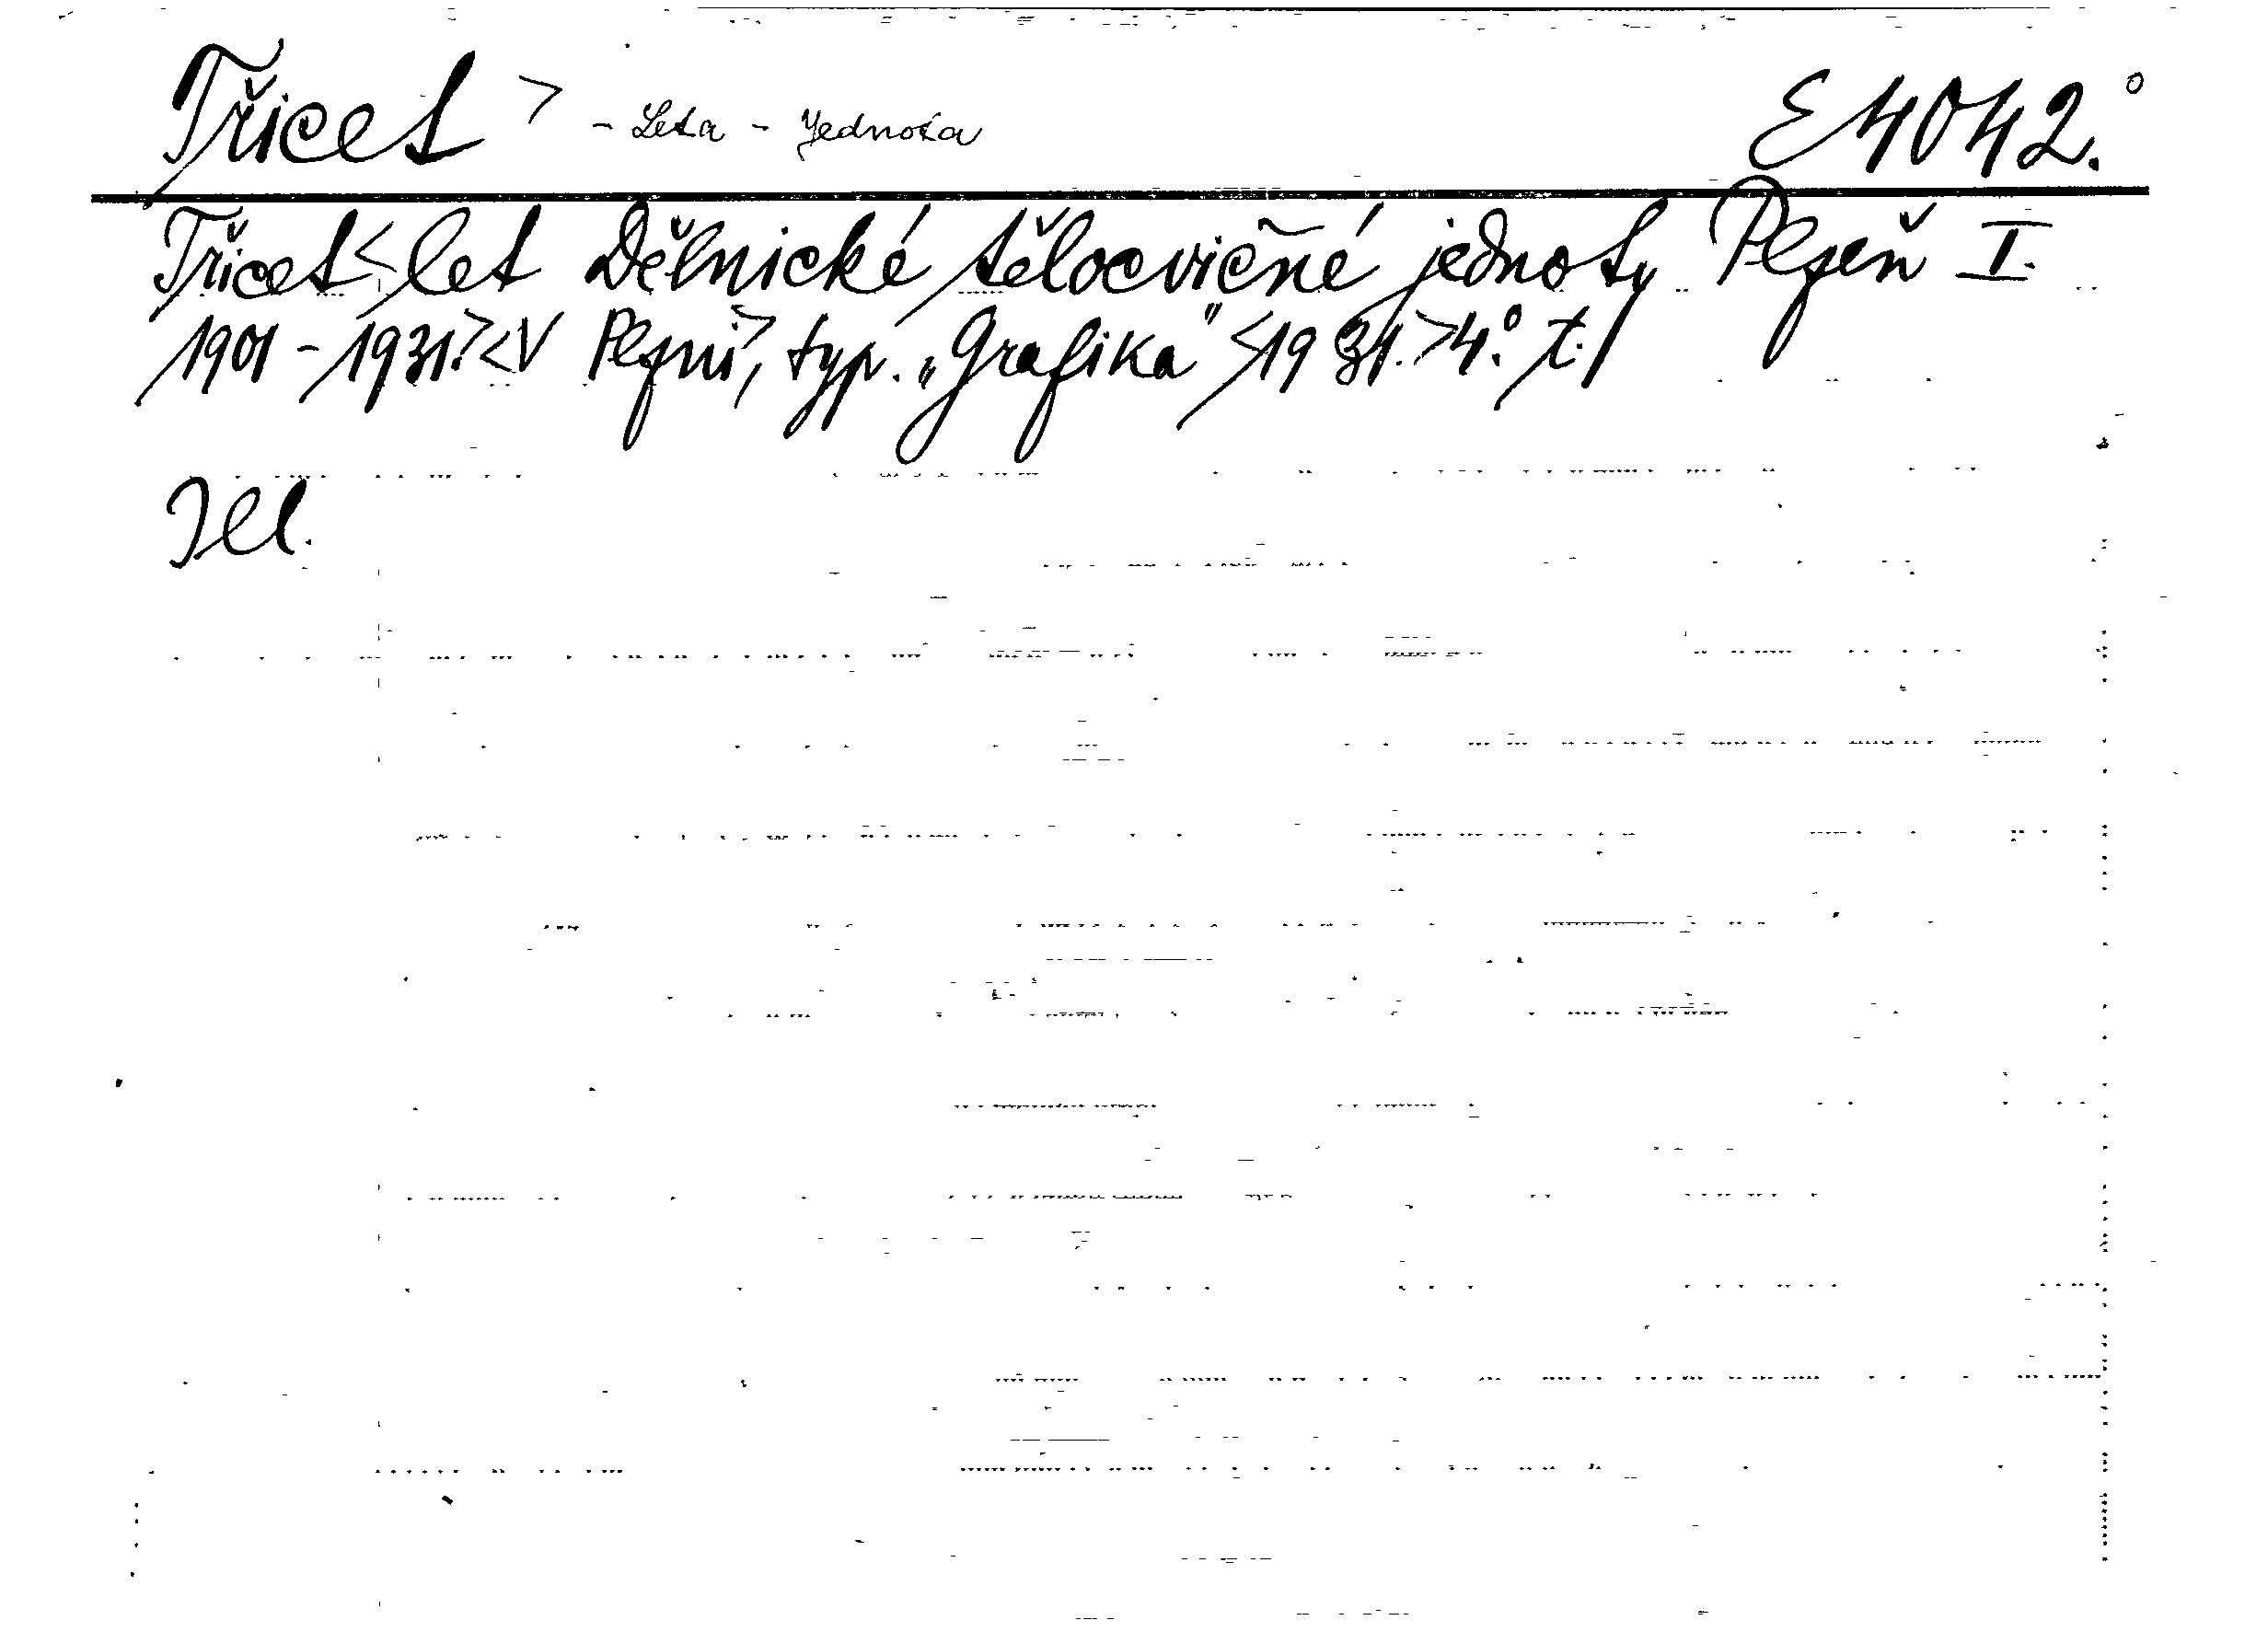 Třicet > - Leta - Jednota E 4042.°
Třicet < let Dělnické tělocvičné jednoty Plzeň I.
1901 - 1931. > < V Plzni >, typ. „Grafika" < 1931. > 4.° t./
Ill.